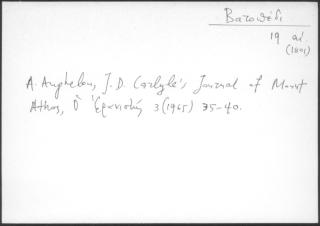 Βατοπέδι
19 αἰ.
(1801)
A. Angelou, J. D. Carlyle's Journal of Mount
Athos, Ὁ Ἐρανιστής 3 (1965) 35-40.